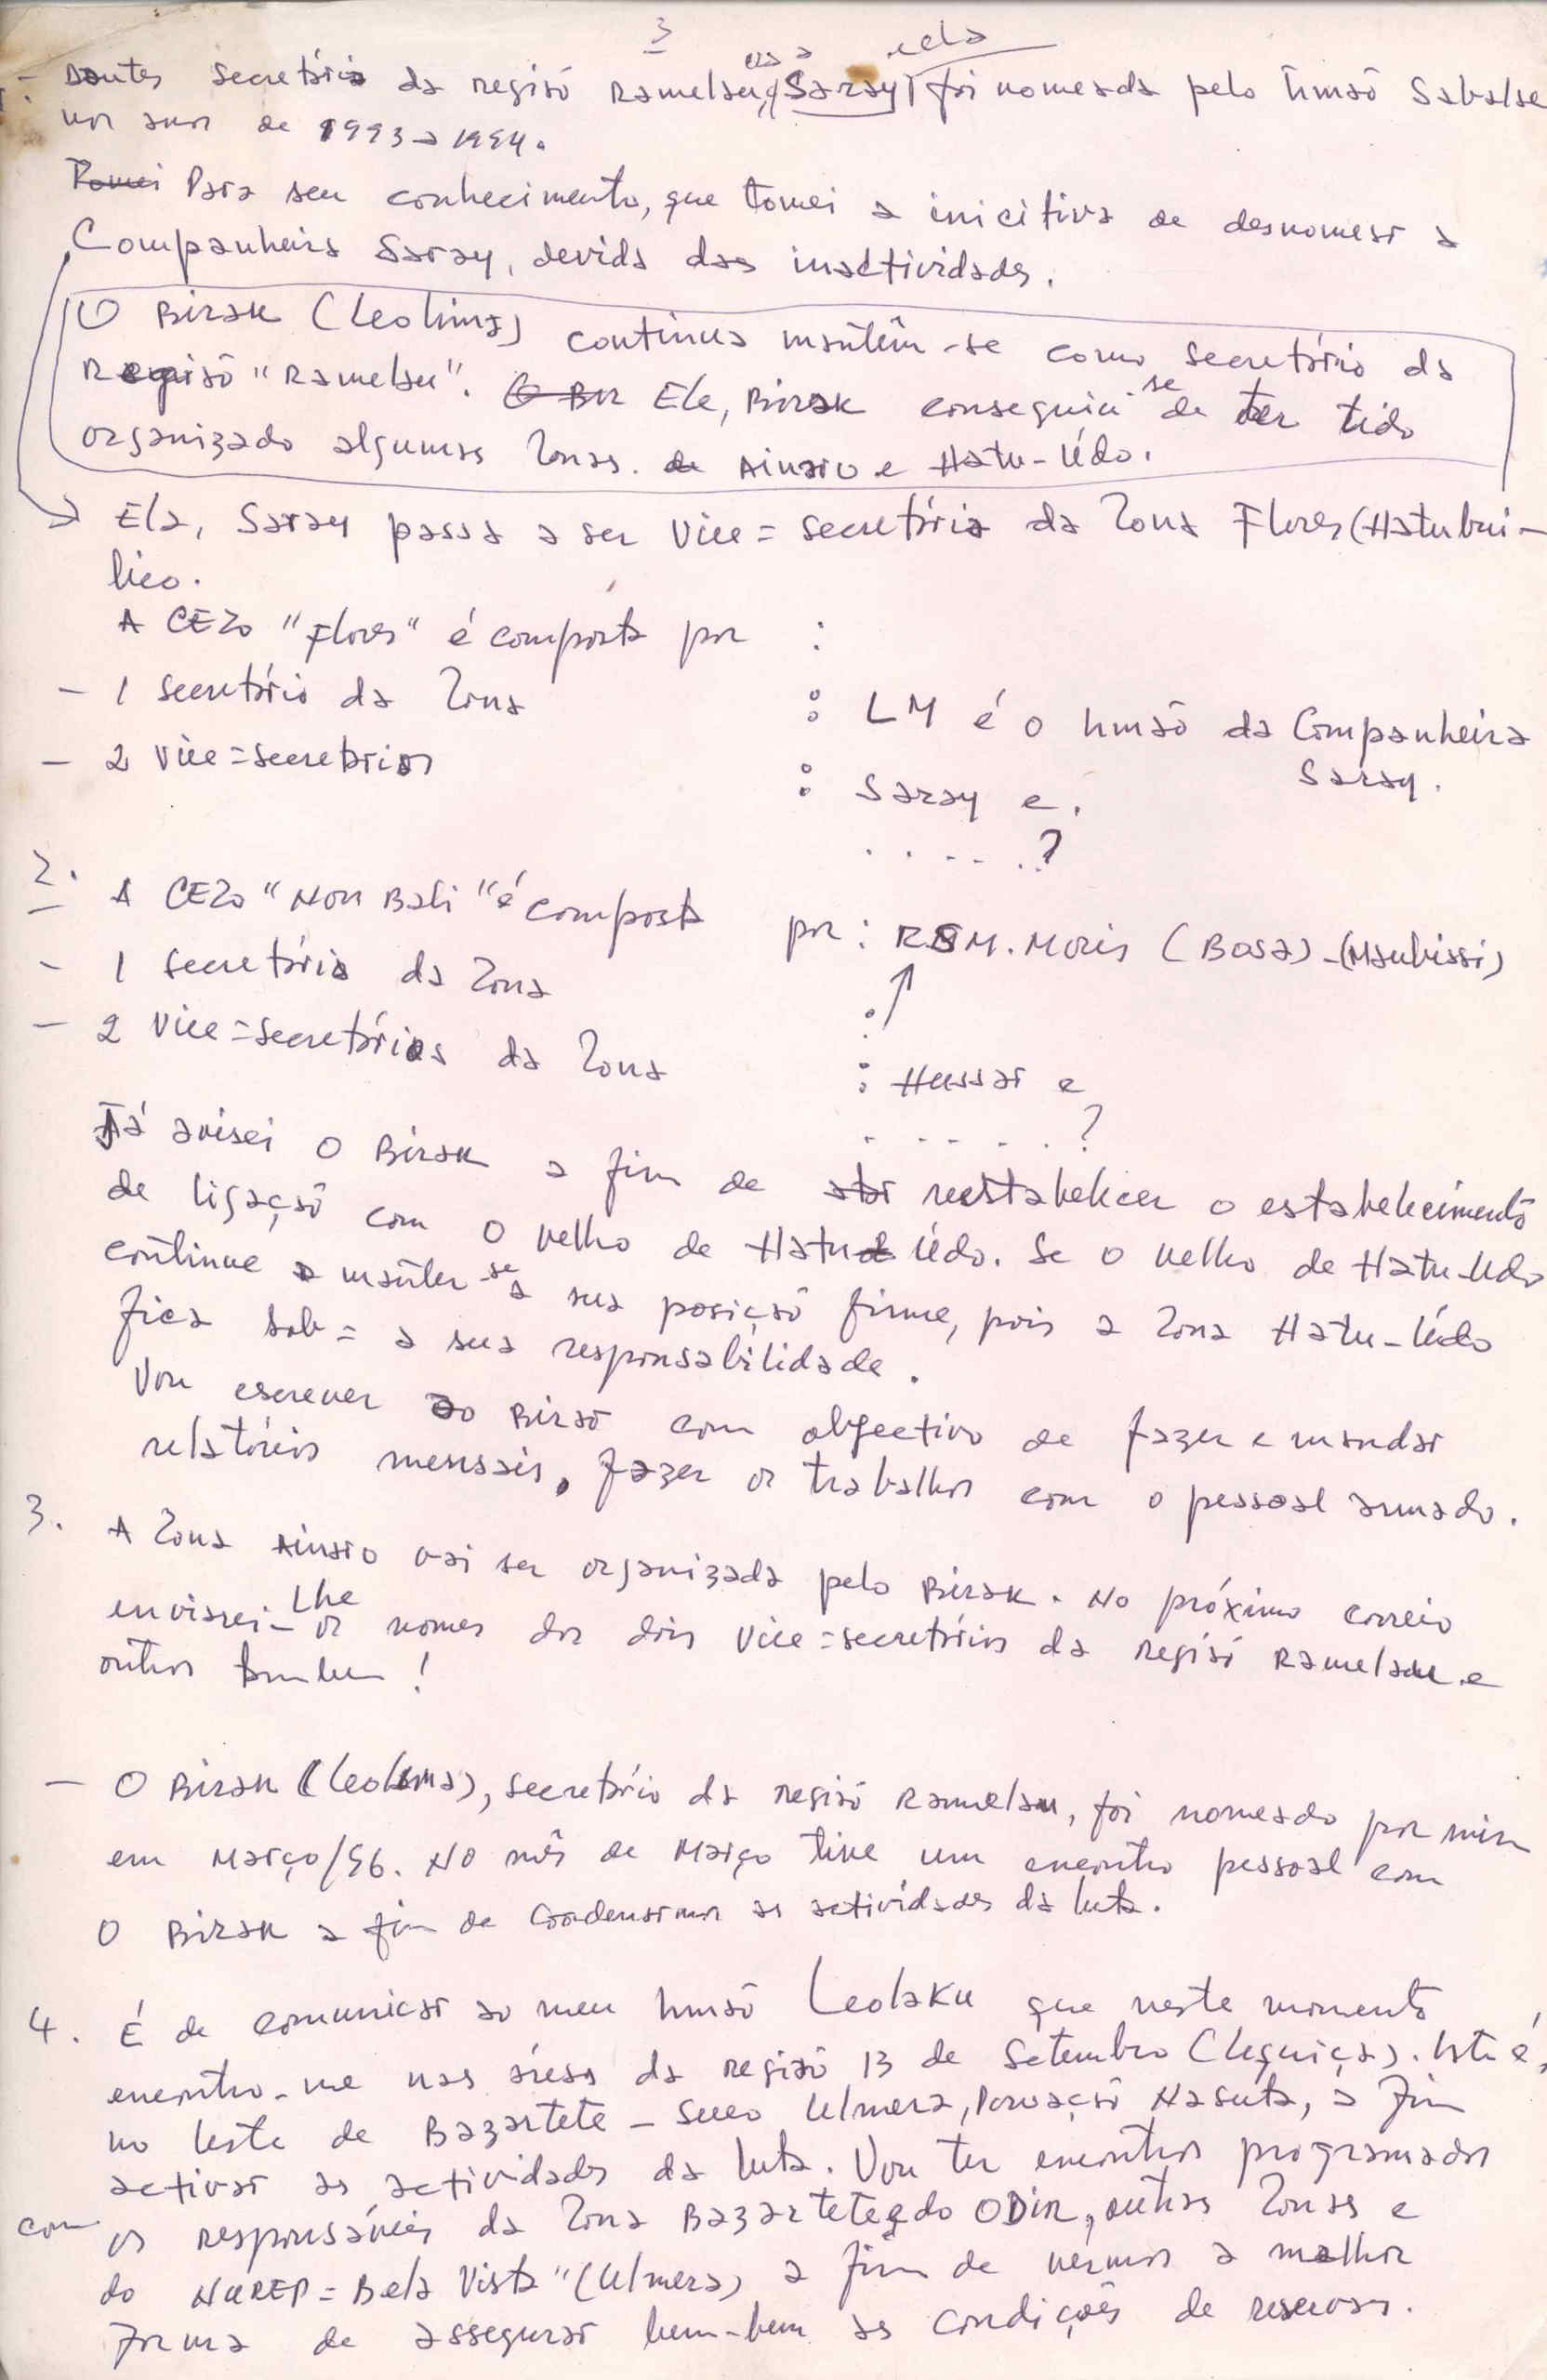 3
- Dantes secretária da região Ramelau, era a (Saray) ela foi nomeada pelo Irmão Sabalae
nos anos de 1993 a 1994.
Tomei Para seu conhecimento, que tomei a inicitiva de desnomear a
Companheira Saray, devida das inactividades.
O Birak (Leolima) continua mantêm-se como secretário da
Região "Ramelau". O Bir Ele, Birak conseguiu-se de ter tido
organizado algumas Zonas. de Ainaro e Hatu-Údo.
Ela, Saray passa a ser Vice=secretária da Zona Flores (Hatubui-
lico.
A CEZo "Flores" é composta por :
- 1 secretário da Zona : LM é o Irmão da Companheira
Saray.
- 2 Vice=secretarios : Saray e.
. . . . . ?
2. A CEZo "Non Bali" é composta por : RSM. Moris (Basa)-(Maubissi)
- 1 secretária da Zona :
- 2 Vice=secretários da Zona : Hussar e
. . . . . ?
Já avisei o Birak a fim de reestabelecer o estabelecimento
de ligação com o velho de Hatu Údo. Se o velho de Hatu-Udo
continue a manter-se a sua posição firme, pois a Zona Hatu-Údo
fica sob= a sua responsabilidade.
Vou escrever ao Biraō com objectivo de fazer e mandar
relatórios mensais, fazer os trabalhos com o pessoal armado.
3. A Zona Ainaro vai ser organizada pelo Birak. No próximo correio
enviarei-Lhe os nomes dos dois Vice=secretários da região Ramelau e
outros tambem!
- O Birak (Leolima), secretário da região Ramelau, foi nomeado por mim
em Março/96. No mês de Março tive um encontro pessoal com
O Birak a fim de coordenarmos as actividades da luta.
4. É de comunicar ao meu Irmão Leolaku que neste momento
encontro-me nas áreas da região 13 de Setembro (Liquiça). Isto é,
no leste de Bazartete - Suco Ulmera, Povoação Nasuta, a fim
activar as actividades da luta. Vou ter encontros programados
com os responsáveis da Zona Bazartete, do ODIR, outras Zonas e
do NUREP = Bela Vista" (Ulmera) a fim de vermos a melhor
forma de assegurar bem-bem as condições de reservas.